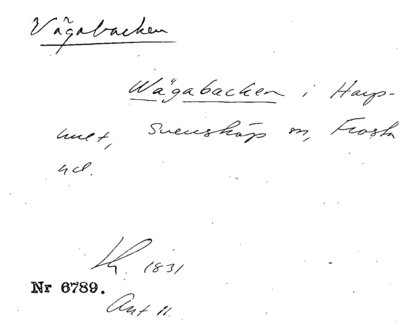 Vägabacken
Wägabacken i Harp-
hult, Svensköp sn, Frosta
hd.
Lh. 1831
Nr 6789.
Ant 11.